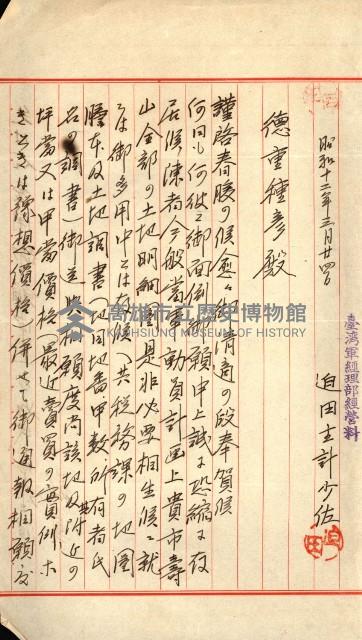 昭和十二年三月廿四日
迫田主計少佐
臺湾軍經理部經營科
德重種彦殿
謹啓春暖の候愈々御清適の段奉賀候
何日も何彼と御面倒御願申上誠に恐縮に存
居候陳者今般當軍動員計画上貴市壽
山全部の土地明細圖是非必要相生候に就
ては御多用中には有候共税務課の地圖
謄本及土地調書(地目地番甲数所有者氏
名の調書)御送与相願度尚該地及其附近の
坪當又は甲當價格(最近賣買の實例ホ
きときは豫想價格)併せて御通報相願度
高雄市立歷史博物館
KAOHSIUNG MUSEUM OF HISTORY